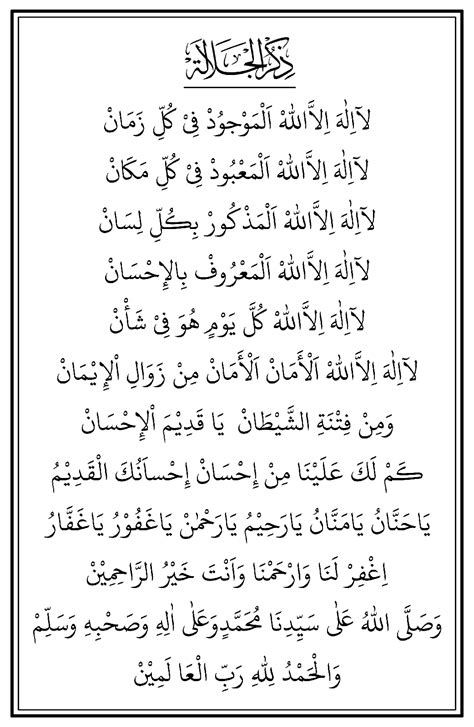 ذِكْرُ الْجَلَالَةْ
لَآاِلٰهَ اِلاَّاللّٰهْ اَلْمَوْجُوْدْ فِىْ كُلِّ زَمَانْ
لَآاِلٰهَ اِلاَّاللّٰهْ اَلْمَعْبُوْدْ فِىْ كُلِّ مَكَانْ
لَآاِلٰهَ اِلاَّاللّٰهْ اَلْمَذْكُورْ بِكُلِّ لِسَانْ
لَآاِلٰهَ اِلاَّاللّٰهْ اَلْمَعْرُوفْ بِالإِحْسَانْ
لَآاِلٰهَ اِلاَّاللّٰهْ كُلَّ يَوْمٍ هُوَ فِىْ شَأْنْ
لَآاِلٰهَ اِلاَّاللّٰهْ اَلْأَمَانْ اَلْأَمَانْ مِنْ زَوَالِ اْلإِيْمَانْ
وَمِنْ فِتْنَةِ الشَّيْطَانْ يَا قَدِيْمَ اْلإِحْسَانْ
كَمْ لَكَ عَلَيْنَا مِنْ إِحْسَانْ إِحْسَانُكَ الْقَدِيْمُ
يَاحَنَّانُ يَامَنَّانُ يَارَحِيْمُ يَارَحْمٰنْ يَاغَفُوْرُ يَاغَفَّارُ
اِغْفِرْ لَنَا وَارْحَمْنَا وَاَنْتَ خَيْرُ الرَّاحِمِيْنْ
وَصَلَّى اللّٰهُ عَلٰى سَيِّدِنَا مُحَمَّدٍوَعَلٰى اٰلِهِ وَصَحْبِهِ وَسَلِّمْ
وَالْحَمْدُ لِلّٰهِ رَبِّ الْعَا لَمِيْنْ